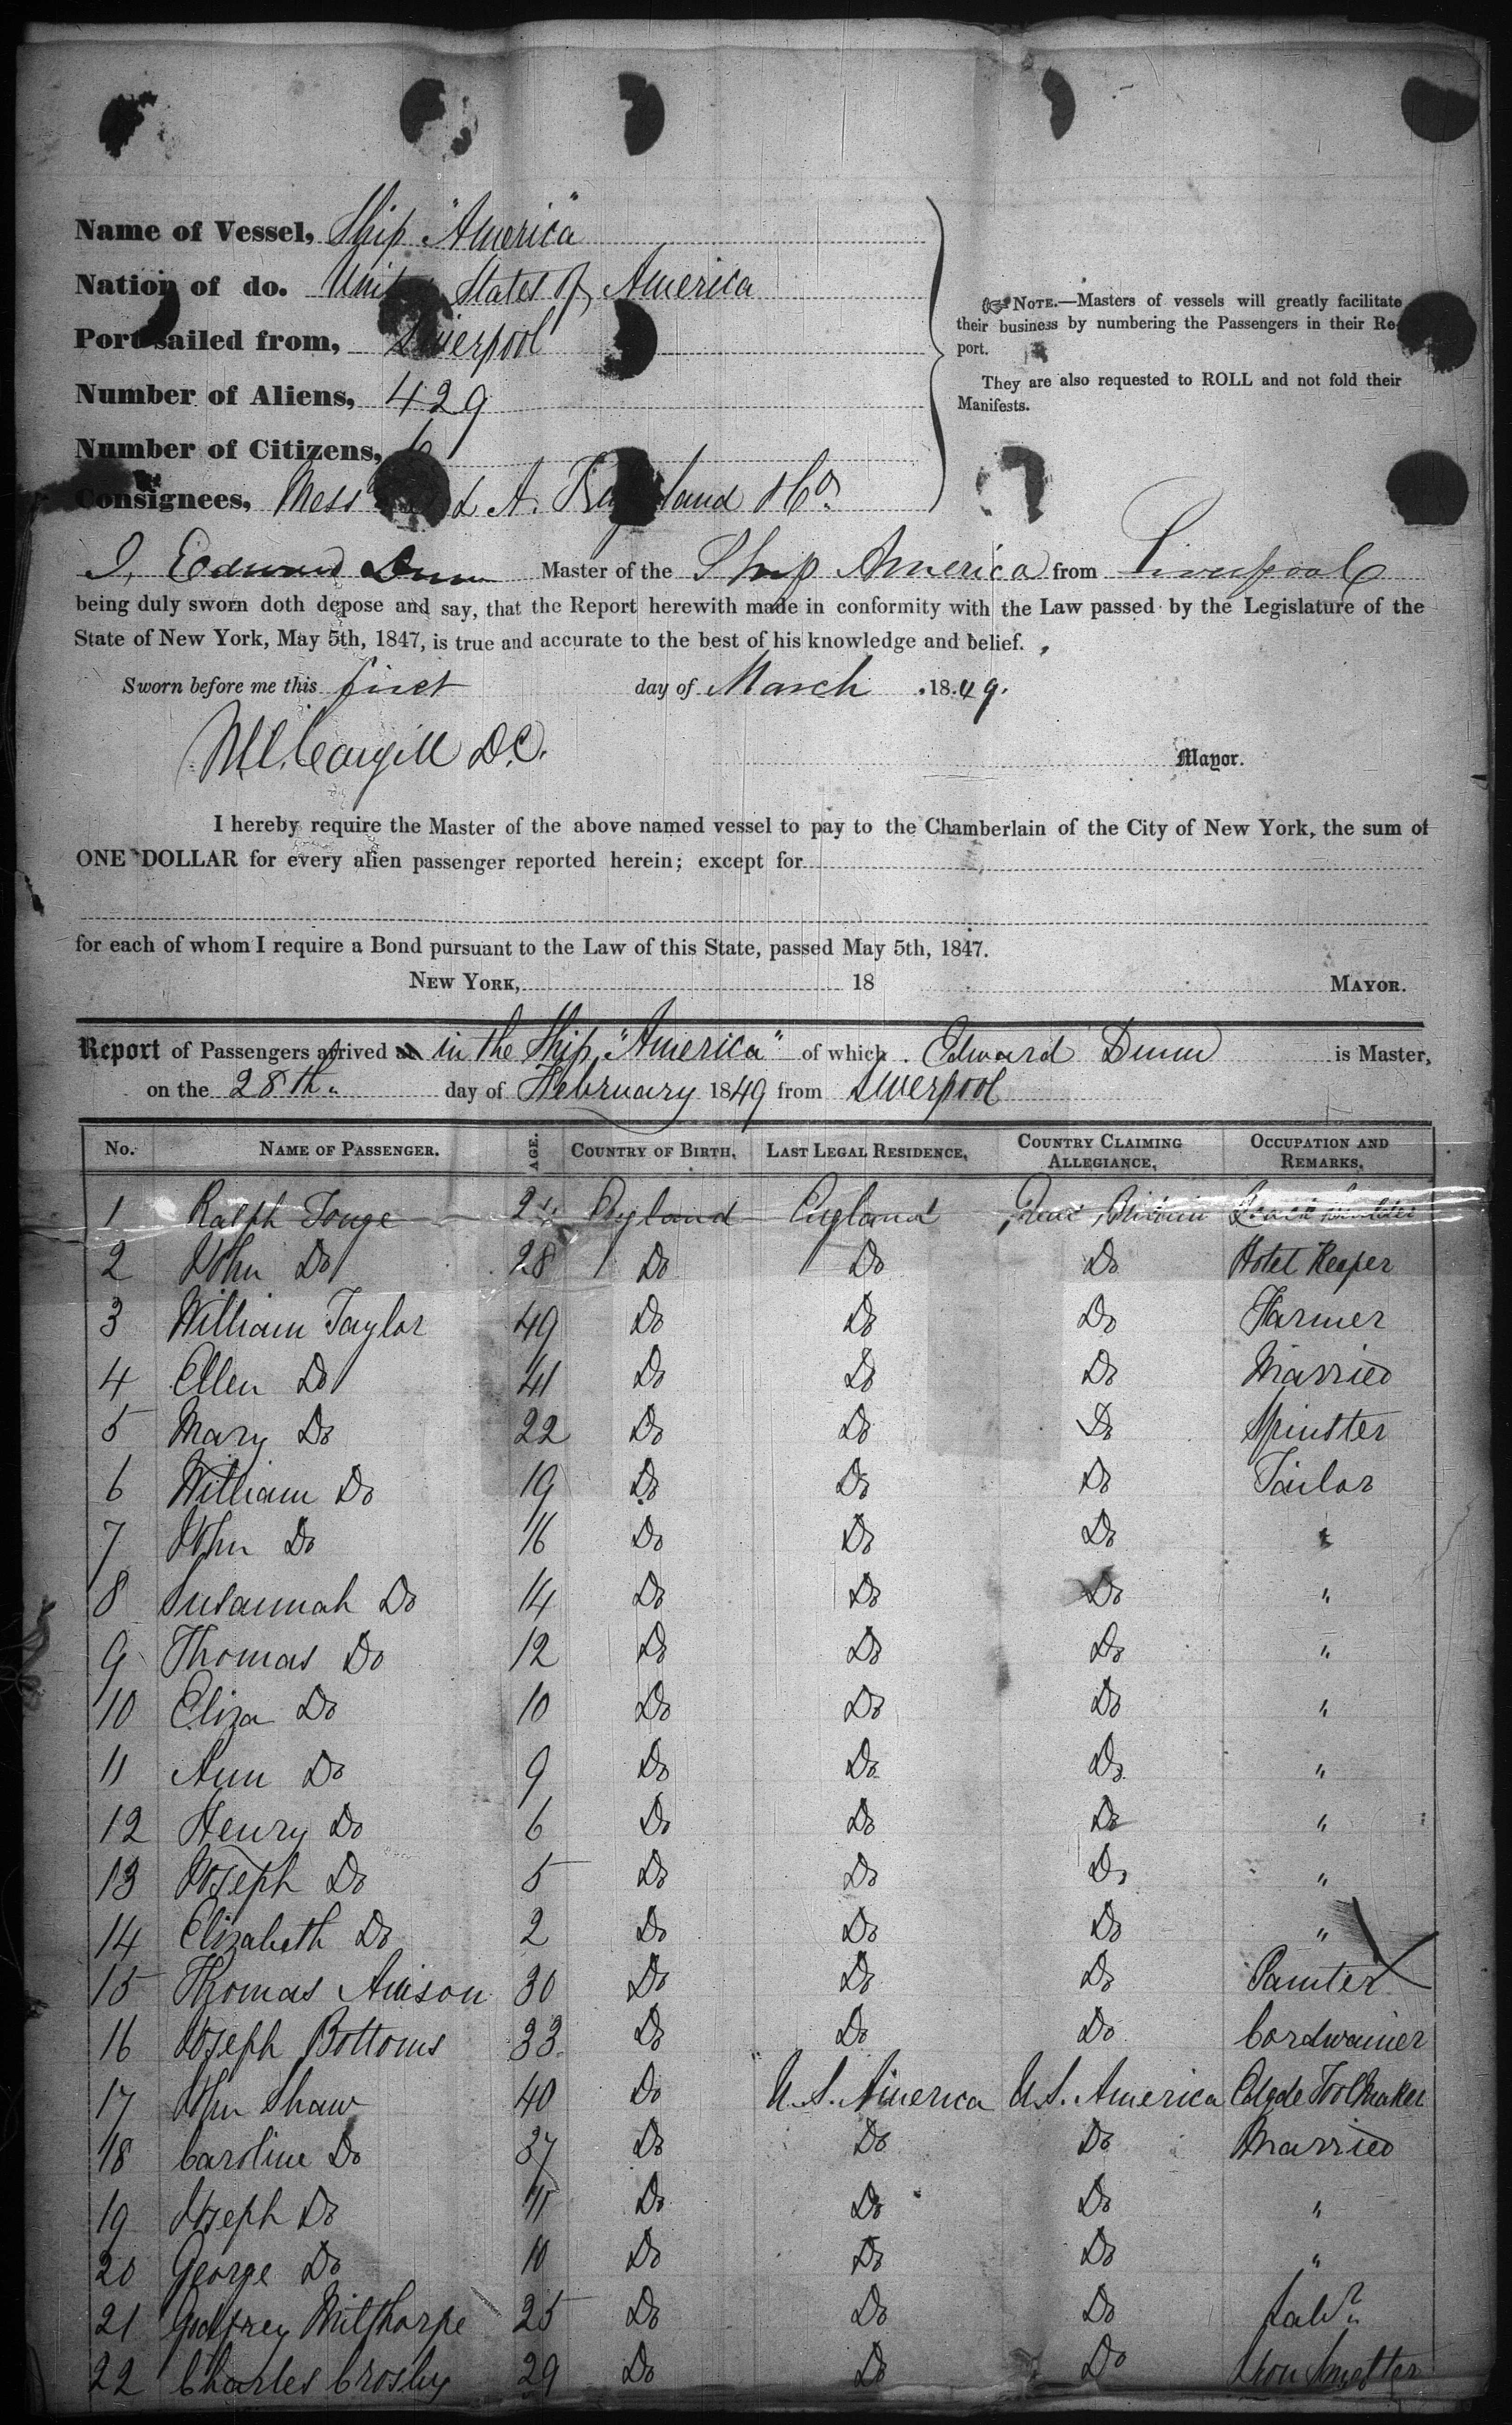 Name of Vessel, Ship "America"
Nation of do. States of America
Port sailed from, Liverpool
Number of Aliens, 429
Number of Citizens, 6
Consignees, Mess A. land & Co.
NOTE.—Masters of vessels will greatly facilitate
their business by numbering the Passengers in their Re-
port.
They are also requested to ROLL and not fold their
Manifests.
I, Edward Dunn Master of the Ship America from Liverpool
being duly sworn doth depose and say, that the Report herewith made in conformity with the Law passed by the Legislature of the
State of New York, May 5th, 1847, is true and accurate to the best of his knowledge and belief.
Sworn before me this first day of March 1849.
Cargill D.C. Mayor.
I hereby require the Master of the above named vessel to pay to the Chamberlain of the City of New York, the sum of
ONE DOLLAR for every alien passenger reported herein; except for
for each of whom I require a Bond pursuant to the Law of this State, passed May 5th, 1847.
NEW YORK, 18 MAYOR.
Report of Passengers arrived in the Ship "America" of which Edward Dunn is Master,
on the 28th. day of February 1849 from Liverpool
No. NAME OF PASSENGER. AGE. COUNTRY OF BIRTH, LAST LEGAL RESIDENCE, COUNTRY CLAIMING ALLEGIANCE, OCCUPATION AND REMARKS,
1 Ralph Tonge England England Great Britain
2 John Do 28 Do Do Do Hotel Keeper
3 William Taylor 49 Do Do Do Farmer
4 Ellen Do 41 Do Do Do Married
5 Mary Do 22 Do Do Do Spinster
6 William Do 19 Do Do Do Tailor
7 John Do 16 Do Do Do "
8 Susannah Do 14 Do Do Do "
9 Thomas Do 12 Do Do Do "
10 Eliza Do 10 Do Do Do "
11 Ann Do 9 Do Do Do "
12 Henry Do 6 Do Do Do "
13 Joseph Do 5 Do Do Do "
14 Elizabeth Do 2 Do Do Do "
15 Thomas Amison 30 Do Do Do Painter
16 Joseph Bottoms 33 Do Do Do Cordwainer
17 John Shaw 40 Do U.S. America U.S. America Edge Tool Maker
18 Caroline Do 37 Do Do Do Married
19 Joseph Do 11 Do Do Do "
20 George Do 10 Do Do Do "
21 Godfrey Milthorpe 25 Do Do Do Labr
22 Charles Crosby 29 Do Do Do Iron Smelter